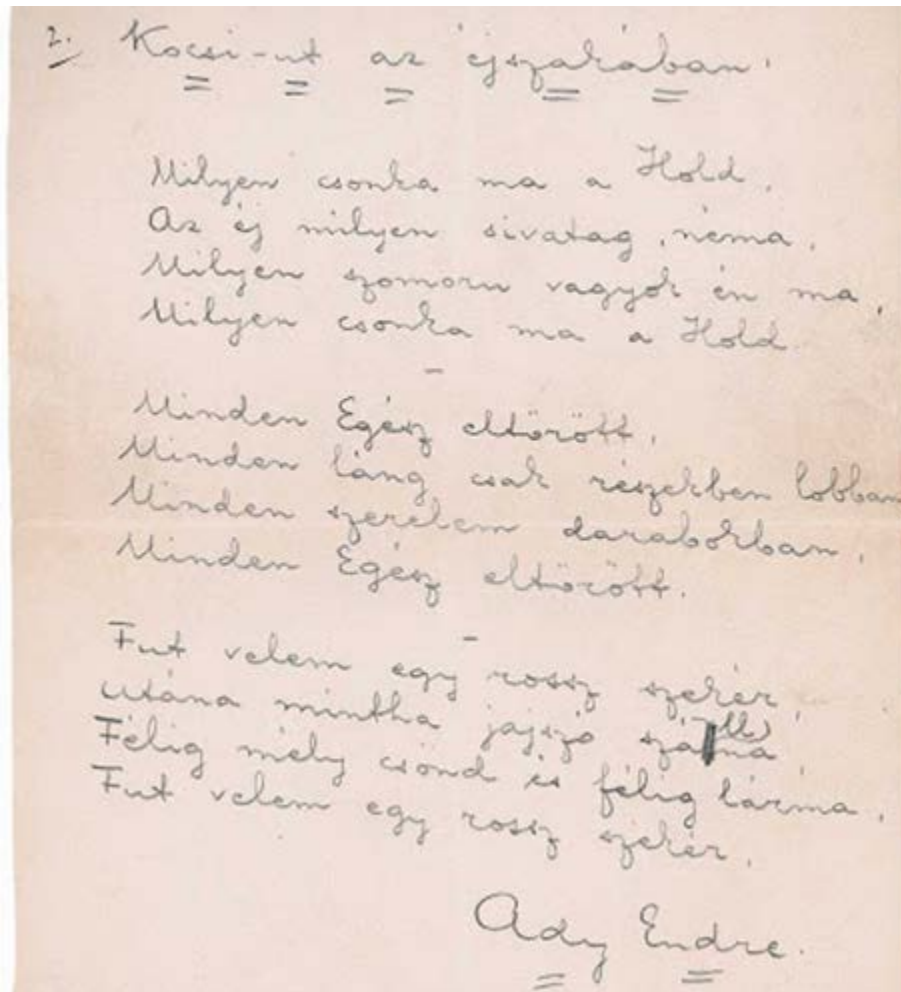 2. Kocsi-ut az éjszakában.
Milyen csonka ma a Hold,
Az éj milyen sivatag, néma,
Milyen szomoru vagyok én ma,
Milyen csonka ma a Hold.
-
Minden Egész eltörött,
Minden láng csak részekben lobban,
Minden szerelem darabokban,
Minden Egész eltörött.
-
Fut velem egy rossz szekér,
utána mintha jajszó szállna,
Félig mély csönd és félig lárma,
Fut velem egy rossz szekér.
Ady Endre.